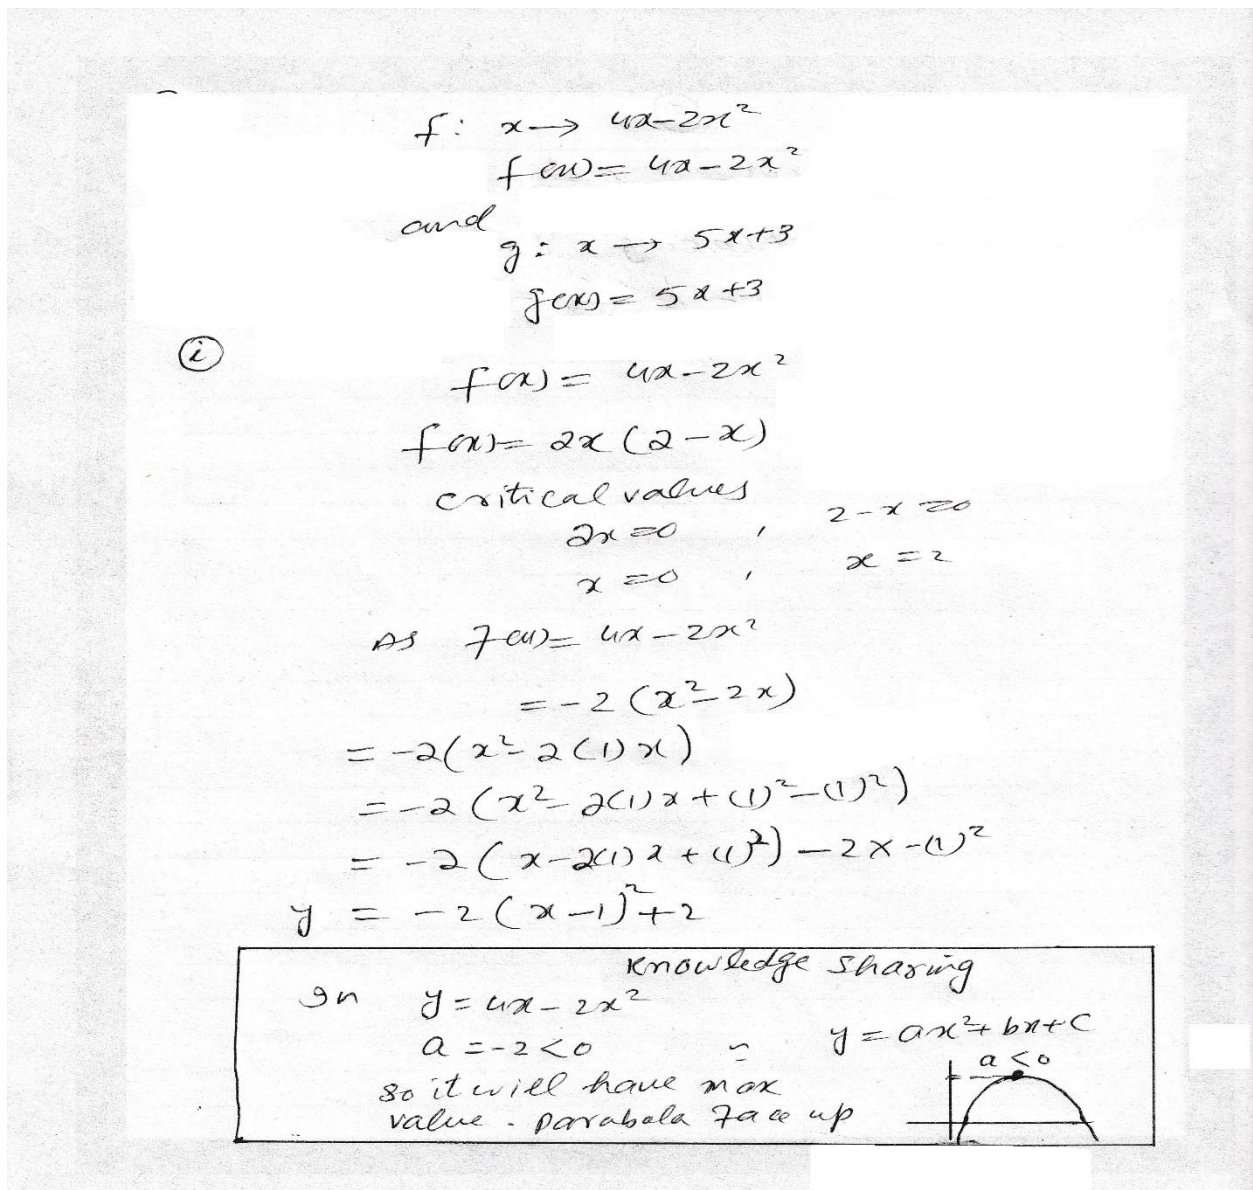 f: x → 4x-2x²
f(x) = 4x-2x²
and
g: x → 5x+3
g(x) = 5x+3
(i)
f(x) = 4x-2x²
f(x) = 2x(2-x)
critical values
2x=0 , 2-x=0
x=0 , x=2
As f(x) = 4x-2x²
=-2(x²-2x)
=-2(x²-2(1)x)
=-2(x²-2(1)x+(1)²-(1)²)
=-2(x-2(1)x+(1)²)-2x-(1)²
y = -2(x-1)²+2
Knowledge sharing
In y=4x-2x²
y=ax²+bx+c
a=-2<0
a<0
so it will have max
value. parabola face up